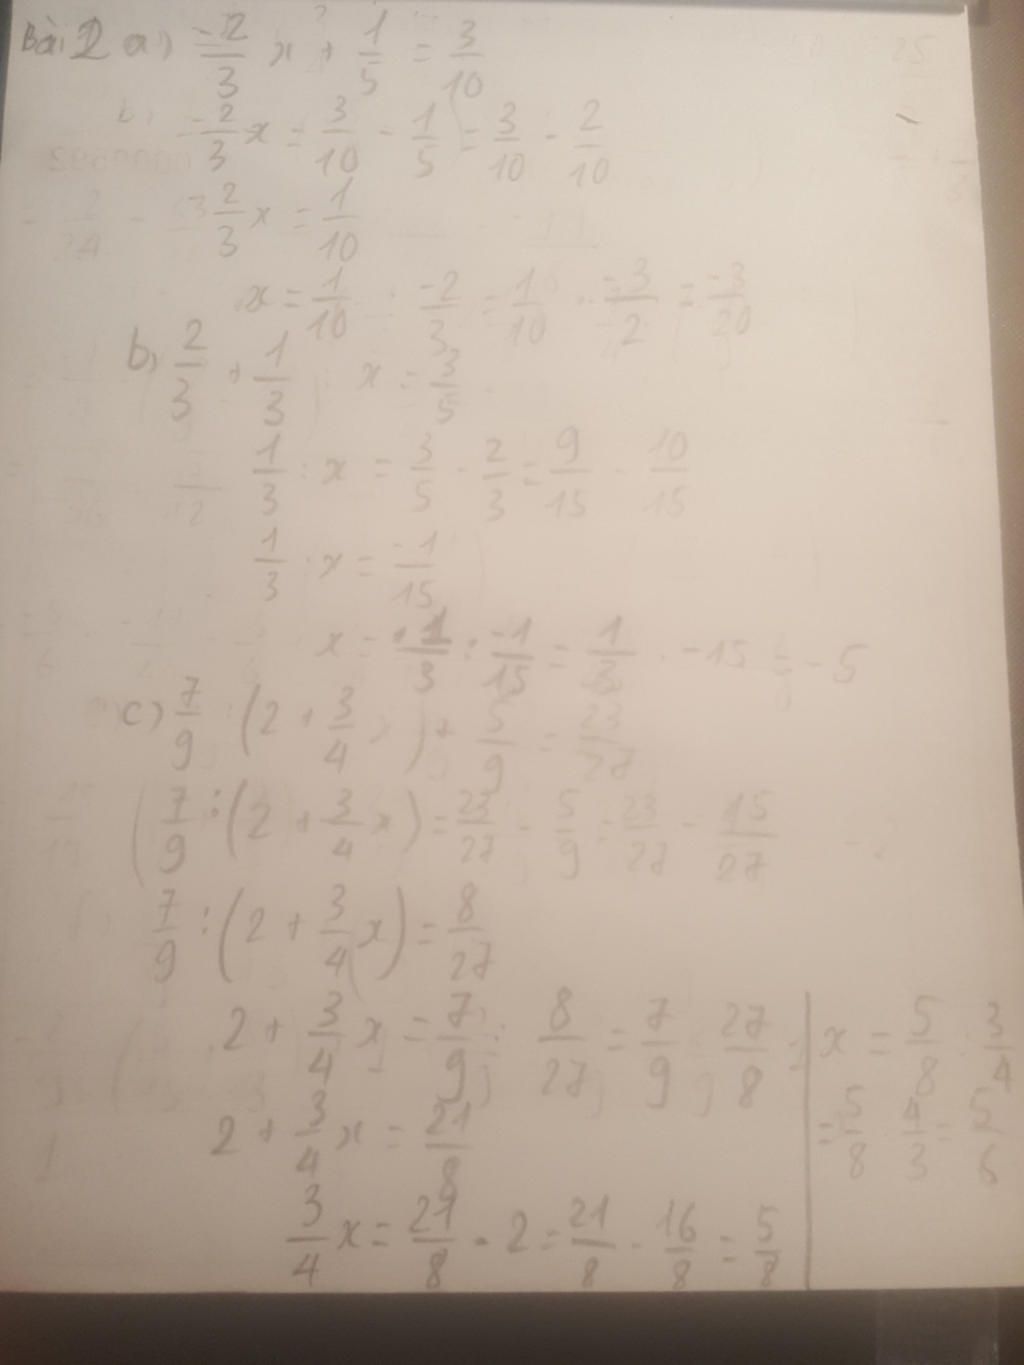 Bài 2 a) -2/3 x + 1/5 = 3/10
-2/3 x = 3/10 - 1/5 = 3/10 - 2/10
-2/3 x = 1/10
x = 1/10 : -2/3 = 1/10 . -3/2 = -3/20
b) 2/3 + 1/3 : x = 3/5
1/3 : x = 3/5 - 2/3 = 9/15 - 10/15
1/3 : x = -1/15
x = 1/3 : -1/15 = 1/3 . -15 = -5
c) 7/9 : (2 + 3/4 x) + 5/9 = 23/27
7/9 : (2 + 3/4 x) = 23/27 - 5/9 = 23/27 - 15/27
7/9 : (2 + 3/4 x) = 8/27
2 + 3/4 x = 7/9 : 8/27 = 7/9 . 27/8
2 + 3/4 x = 21/8
3/4 x = 21/8 - 2 = 21/8 - 16/8 = 5/8
x = 5/8 : 3/4
= 5/8 . 4/3 = 5/6